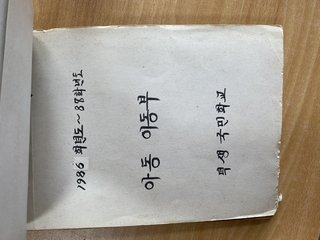 1986 학년도~88학년도
아동 이동부
국민학교